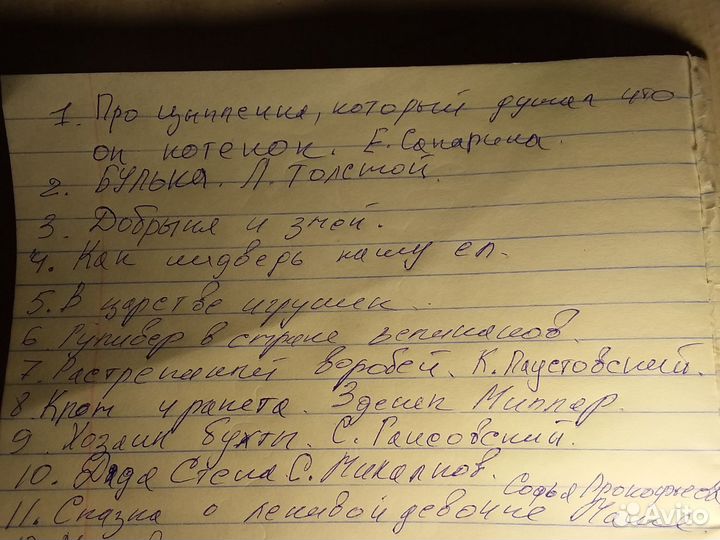 1. Про цыпленка, который думал что
он котенок. Е. Сапарина.
2. БУЛЬКА. Л. Толстой.
3. Добрыня и змей.
4. Как медведь кашу ел.
5. В царстве игрушек.
6 Гулливер в стране великанов.
7. Растрепанный воробей. К. Паустовский.
8 Крот и ракета. Зденек Миллер.
9. Хозяин бухты. С.
10. Дядя Степа С. Михалков.
Софья Прокофьева
11. Сказка о ленивой девочке Маше
Avito